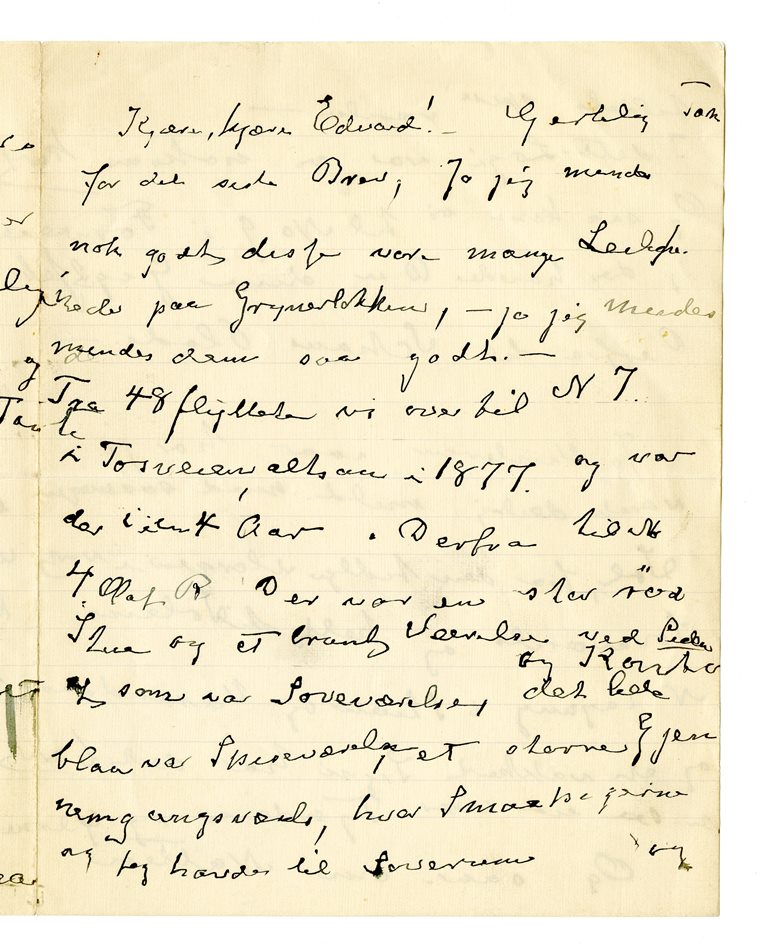 Kjære, kjære Edvard! — Hertelig Tak
for det siste Brev, Jo jeg mindes
nok godt disse vore mange Leilighe-
heder paa Grynerløkken, — jo jeg mindes
mindes dem saa godt. —
Fra 48 flyttede vi over til N 7.
i Fosveien, altsaa i 1877. og var
der i en 4 Aar. Derfra til N
4 Olaf R. Der var en stor rød
Stue og et trangt Værelse ved Siden
og Kontor
som var Soveværelse, det lille
blaa var Spiseværelse, et større Gjen
nemgangsværelse, hvor Smaapigerne
og jeg havde til Soverum og